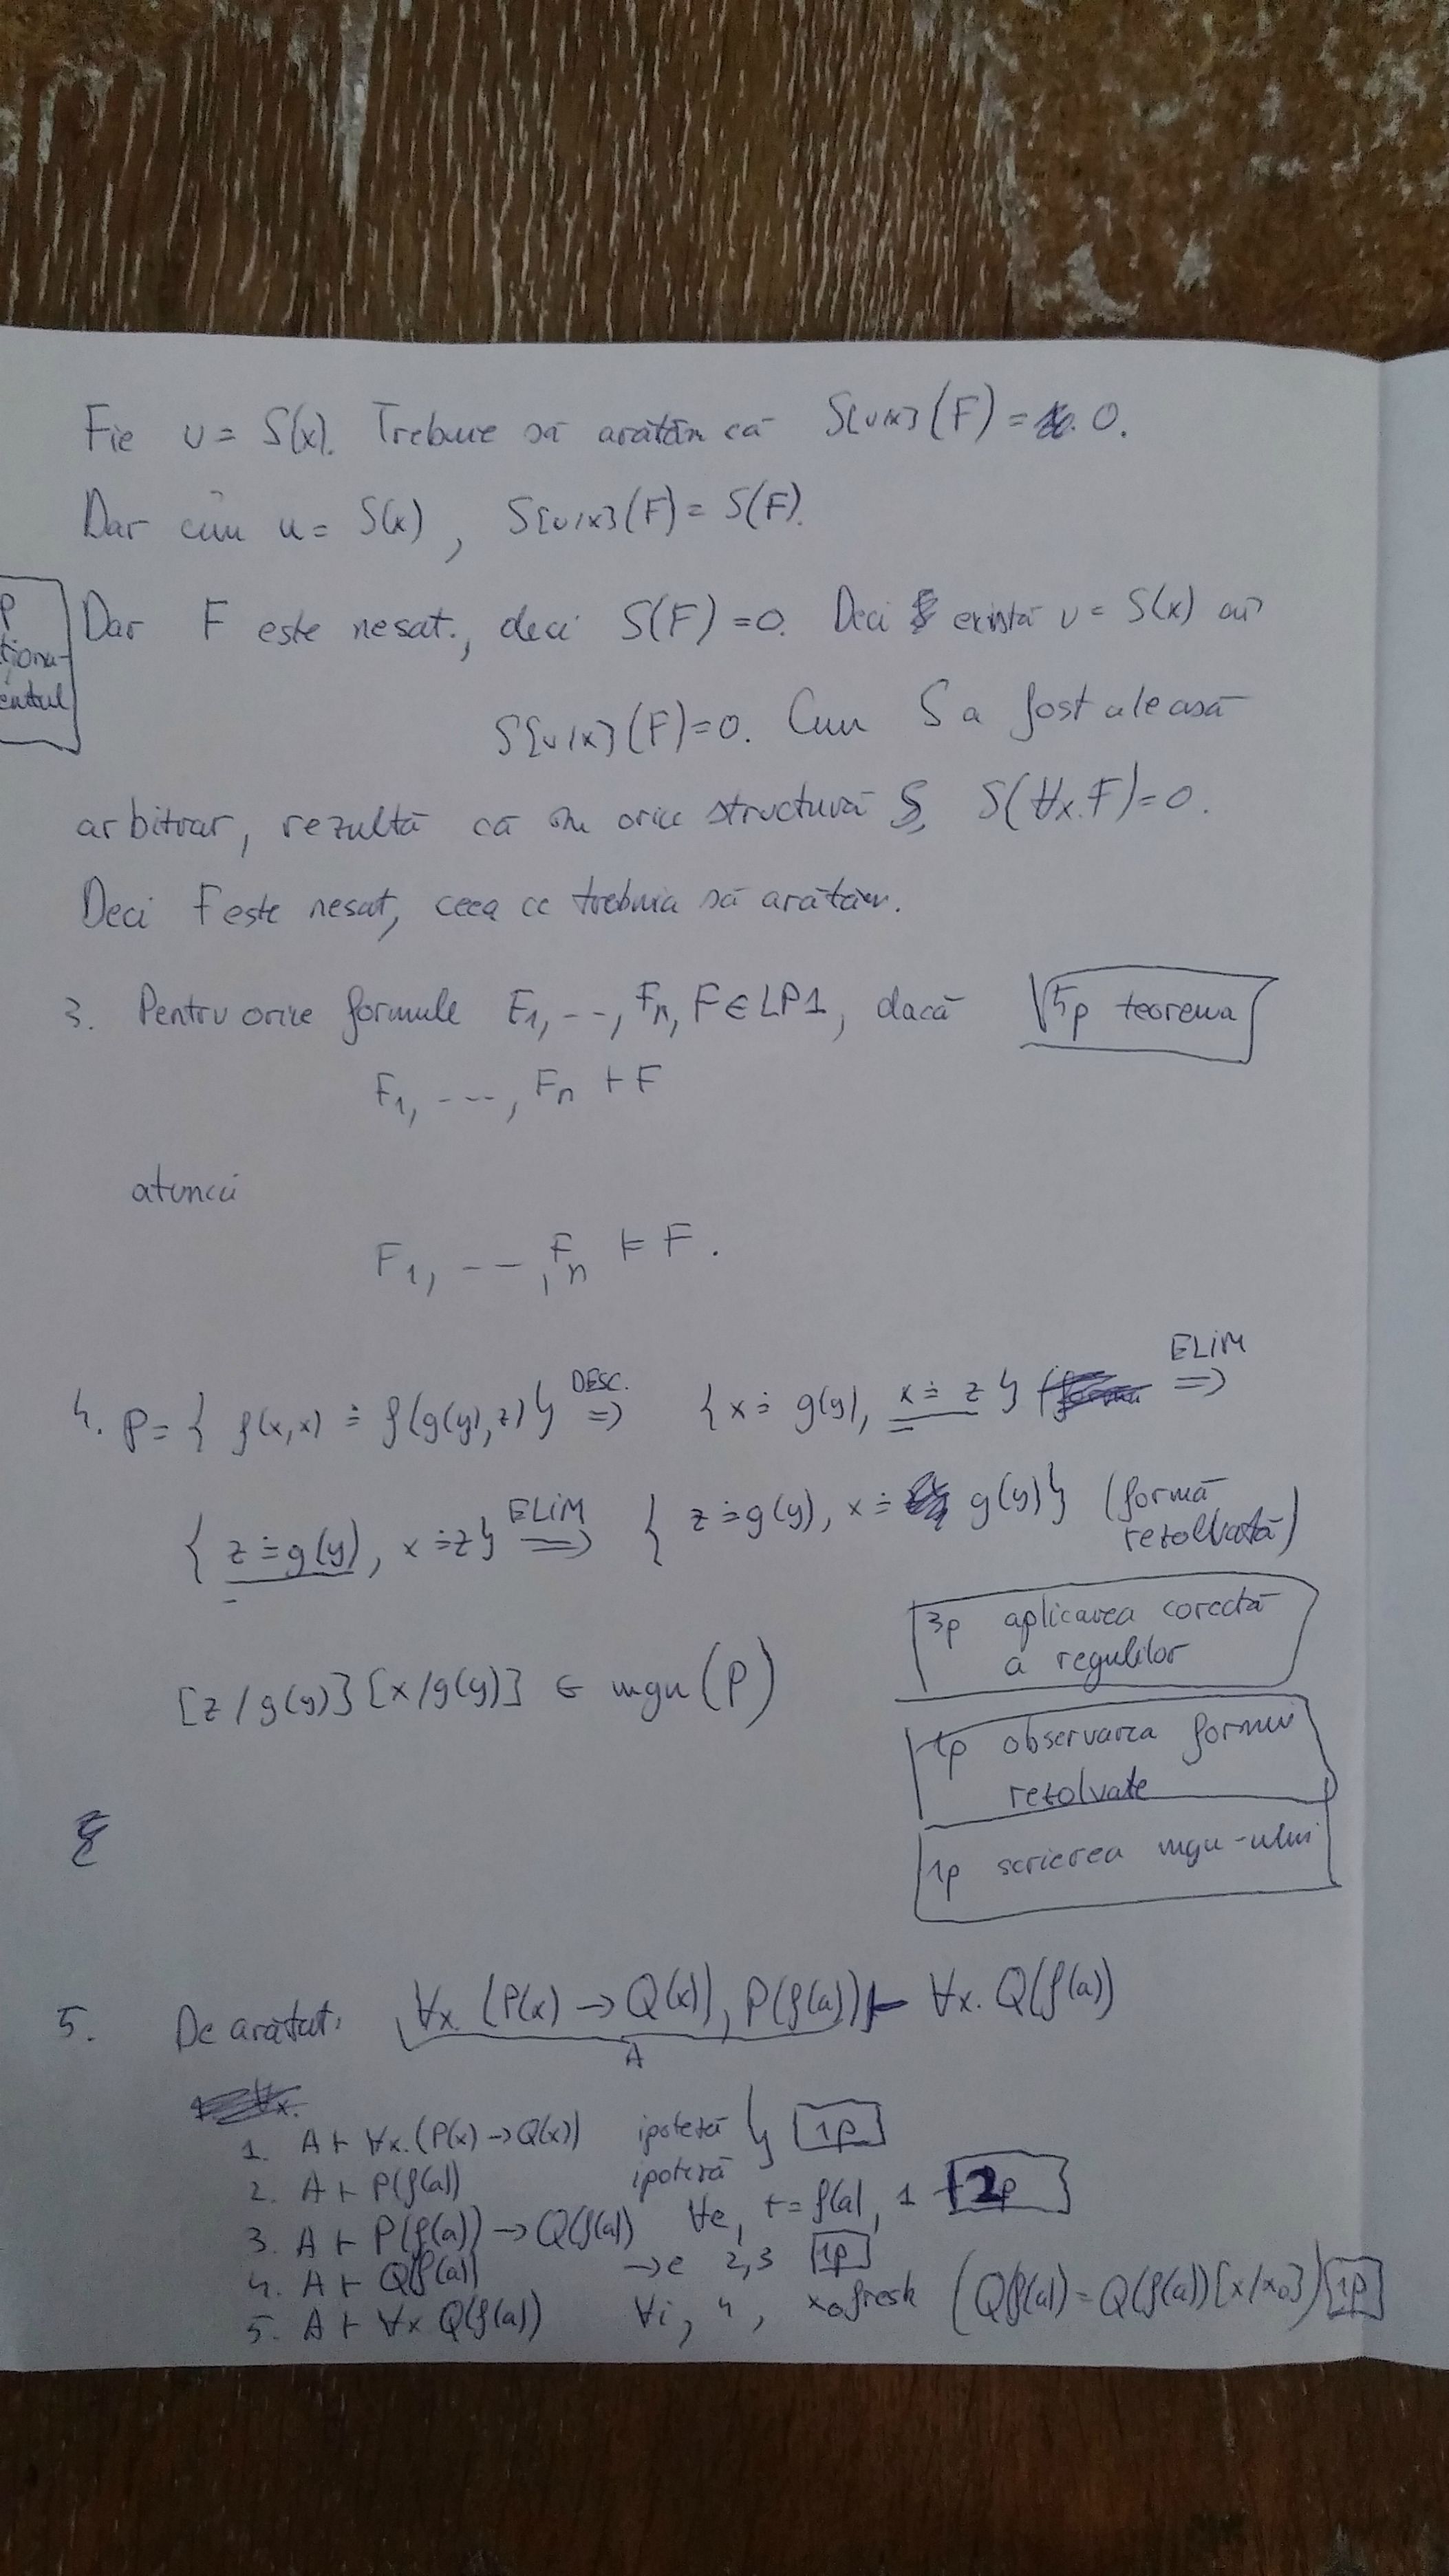 Fie u = S(x). Trebuie să arătăm că S[u/x](F) = 0.
Dar cum u = S(x), S[u/x](F) = S(F).
Dar F este nesat., deci S(F) = 0. Deci există u = S(x) aî
S[u/x](F) = 0. Cum S a fost aleasă
arbitrar, rezultă că în orice structură S, S(∀x.F) = 0.
Deci F este nesat, ceea ce trebuia să arătăm.
3. Pentru orice formule F1, --, Fn, F ∈ LP1, dacă
5p teorema
F1, ---, Fn ⊢ F
atunci
F1, ---, Fn ⊨ F.
4. P = { f(x,x) ≐ f(g(y),z) } DESC. ⇒ { x ≐ g(y), x ≐ z } ELIM ⇒
{ z ≐ g(y), x ≐ z } ELIM ⇒ { z ≐ g(y), x ≐ g(y) } (formă
rezolvată)
3p aplicarea corectă
a regulilor
[z/g(y)][x/g(y)] ∈ mgu(P)
1p observarea formei
rezolvate
1p scrierea mgu-ului
5. De arătat: ∀x.(P(x) → Q(x)), P(f(a)) ⊢ ∀x. Q(f(a))
A
1. A ⊢ ∀x.(P(x) → Q(x)) ipoteză } 1p
2. A ⊢ P(f(a)) ipoteză
3. A ⊢ P(f(a)) → Q(f(a)) ∀e, t = f(a), 1 2p
4. A ⊢ Q(f(a)) →e 2,3 1p
5. A ⊢ ∀x Q(f(a)) ∀i, 4, x0 fresh (Q(f(a)) = Q(f(a))[x/x0]) 1p